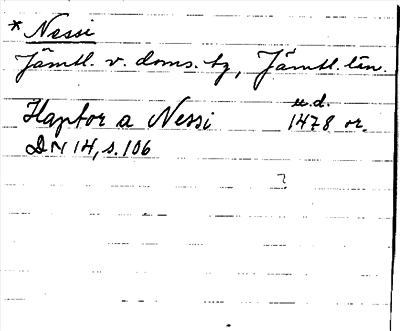 * Nessi
Jämtl. v. doms. tg, Jämtl. län.
u.d.
Haptor a Nessi 1478 or.
DN 14, s. 106
?